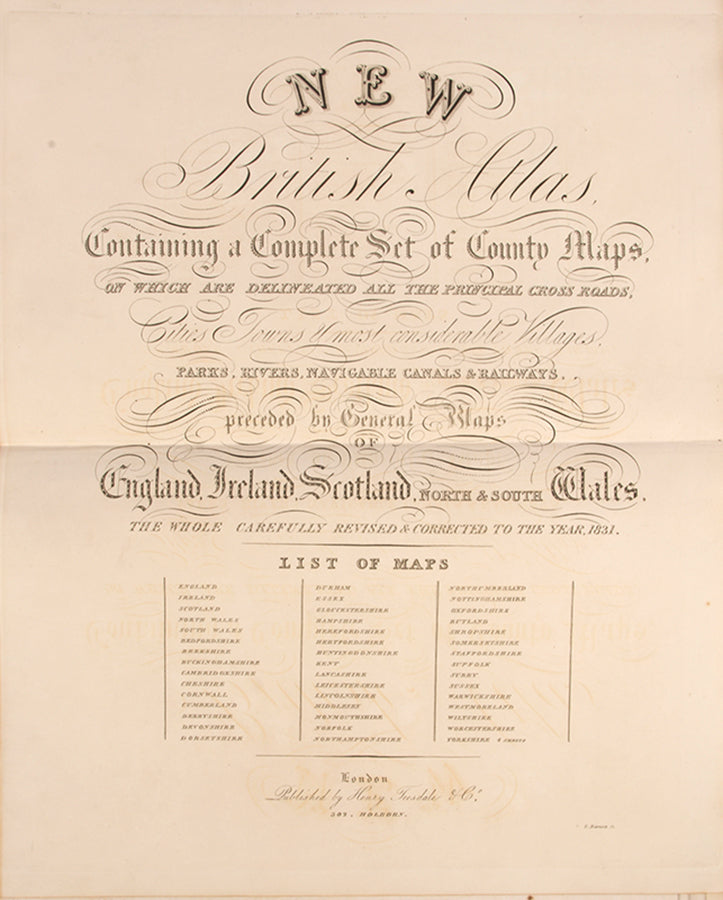 NEW
British Atlas,
Containing a Complete Set of County Maps,
ON WHICH ARE DELINEATED ALL THE PRINCIPAL CROSS ROADS,
Cities Towns & most considerable Villages.
PARKS, RIVERS, NAVIGABLE CANALS & RAILWAYS.
preceded by General Maps
OF
England, Ireland, Scotland, NORTH & SOUTH Wales.
THE WHOLE CAREFULLY REVISED & CORRECTED TO THE YEAR, 1831.
LIST OF MAPS
ENGLAND
IRELAND
SCOTLAND
NORTH WALES
SOUTH WALES
BEDFORDSHIRE
BERKSHIRE
BUCKINGHAMSHIRE
CAMBRIDGESHIRE
CHESHIRE
CORNWALL
CUMBERLAND
DERBYSHIRE
DEVONSHIRE
DORSETSHIRE
DURHAM
ESSEX
GLOUCESTERSHIRE
HAMPSHIRE
HEREFORDSHIRE
HERTFORDSHIRE
HUNTINGDONSHIRE
KENT
LANCASHIRE
LEICESTERSHIRE
LINCOLNSHIRE
MIDDLESEX
MONMOUTHSHIRE
NORFOLK
NORTHAMPTONSHIRE
NORTHUMBERLAND
NOTTINGHAMSHIRE
OXFORDSHIRE
RUTLAND
SHROPSHIRE
SOMERSETSHIRE
STAFFORDSHIRE
SUFFOLK
SURRY
SUSSEX
WARWICKSHIRE
WESTMORELAND
WILTSHIRE
WORCESTERSHIRE
YORKSHIRE 4 SHEETS
London
Published by Henry Teesdale & Co.
302, HOLBORN.